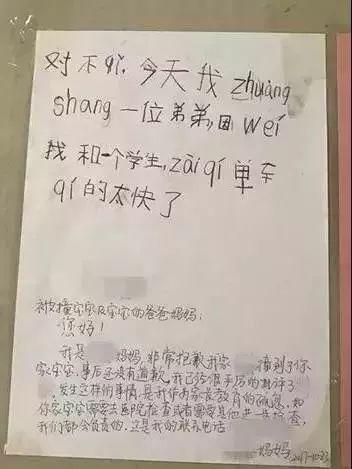 对不qǐ,今天我zhuàng
shang一位弟弟,因wéi
我和一个学生,zài qí单车
qí的太快了
被撞宝宝及宝宝的爸爸妈妈:
您好!
我是 妈妈 非常抱歉我家 撞到了你
家宝宝,事后还没有道歉,我已经很严厉的批评了
,发生这样的事情,是我作为家长教育的疏忽,如
你家宝宝需要去医院检查或者需要其他进一步检查,
我们都会负责的.这是我的联系电话
妈妈
2017-10-23